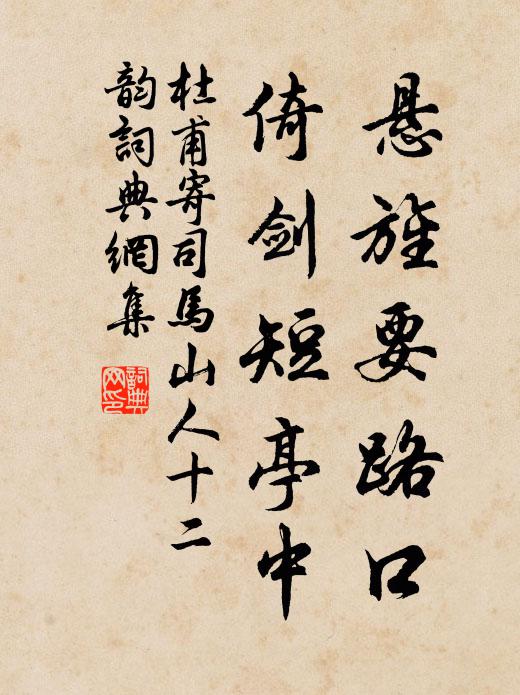 悬旌要路口
倚剑短亭中
杜甫寄司馬山人十二
韵詞典網集
詞典网印